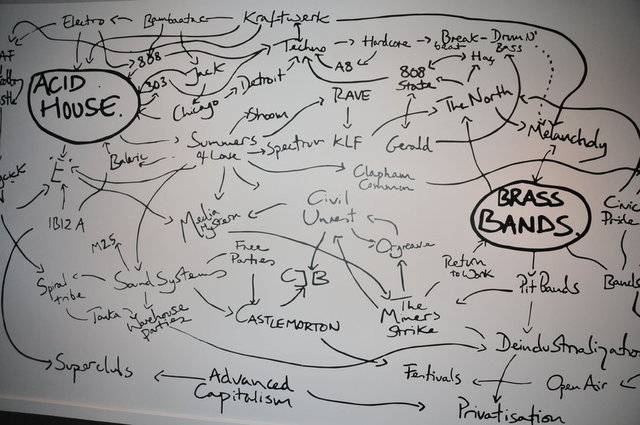 Electro
Bambaataa
Kraftwerk
AF
808
Techno
Hardcore
Break-
beat
Drum N'
Bass
ACID
HOUSE.
303
Jack
Detroit
A8
808
State
Hac
Chicago
Shoom
RAVE
The North
Summers
of Love
Spectrum
KLF
Gerald
Melancholy
Balaric
"E"
Clapham
Common
BRASS
BANDS.
Civic
Pride
IBIZA
Media
Hysteria
Civil
Unrest
M25
Free
Parties
CJB
Orgreave
Return
to Work
Pit Bands
Bands
Spiral
tribe
Sound Systems
Tonka
Warehouse
Parties
CASTLEMORTON
The
Miners
Strike
Deindustrialization
Superclubs
Advanced
Capitalism
Festivals
Open Air
Privatisation